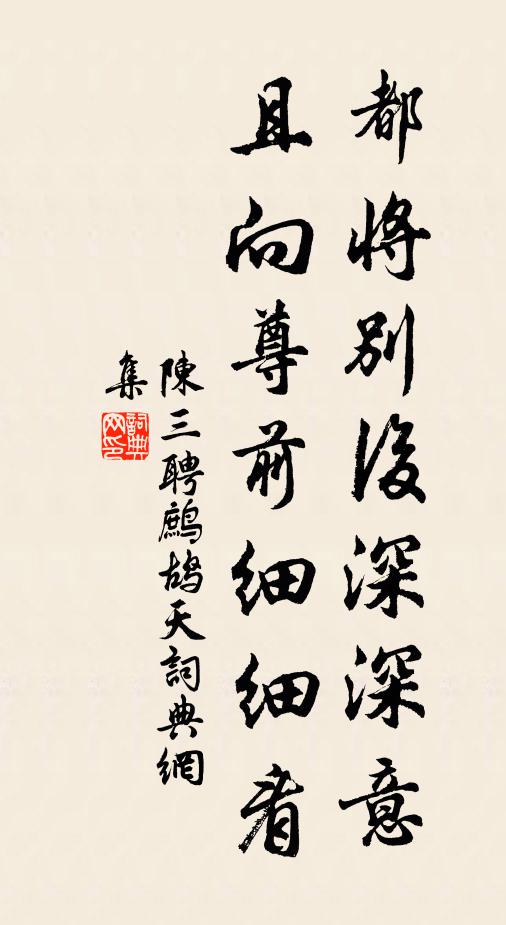 都將別後深深意
且向尊前細細看
陳三聘鷓鴣天詞典網
集
詞典网印